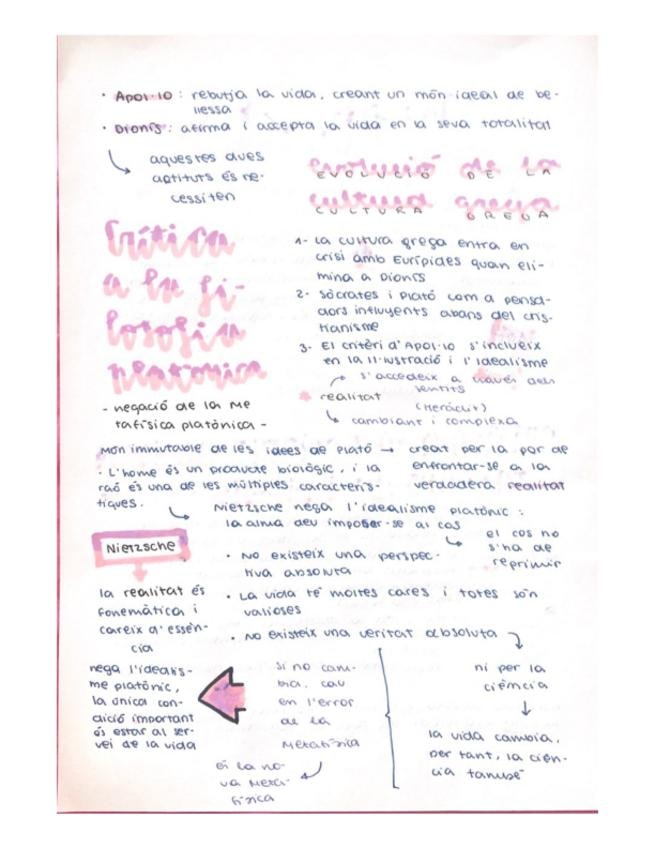 · Apol·lo: rebutja la vida, creant un món ideal de be-
llesa
· Dionís: afirma i accepta la vida en la seva totalitat
aquestes dues
aptituts és ne-
cessiten
EVOLUCIÓ DE LA
CULTURA GREGA
1- La cultura grega entra en
crisi amb Eurípides quan eli-
mina a Dionís
2- Sòcrates i Plató com a pensa-
dors influyents abans del cris-
tianisme
3- El criteri d'Apol·lo s'inclueix
en la Il·lustració i l'Idealisme
s'accedeix a través dels
sentits
* realitat
(Heràclit)
cambiant i complexa
Crítica
a la fi-
losofia
platònica
- negació de la Me
tafísica platònica -
Món immutable de les idees de Plató → creat per la por de
enfrontar-se a la
verdadera realitat
· L'home és un producte biològic, i la
raó és una de les múltiples caracterís-
tiques.
Nietzsche nega l'idealisme platònic:
la alma deu imposar-se al cos
el cos no
s'ha de
reprimir
Nietzsche
la realitat és
fonemàtica i
careix d'essèn-
cia
· No existeix una perspec-
tiva absoluta
· La vida té moltes cares i totes són
valioses
· No existeix una veritat absoluta
ni per la
ciència
la vida cambia,
per tant, la cièn-
cia també
nega l'idealis-
me platònic,
la única con-
dició important
és estar al ser-
vei de la vida
si no cam-
bia, cau
en l'error
de la
Metafísica
la no-
va Meta-
física